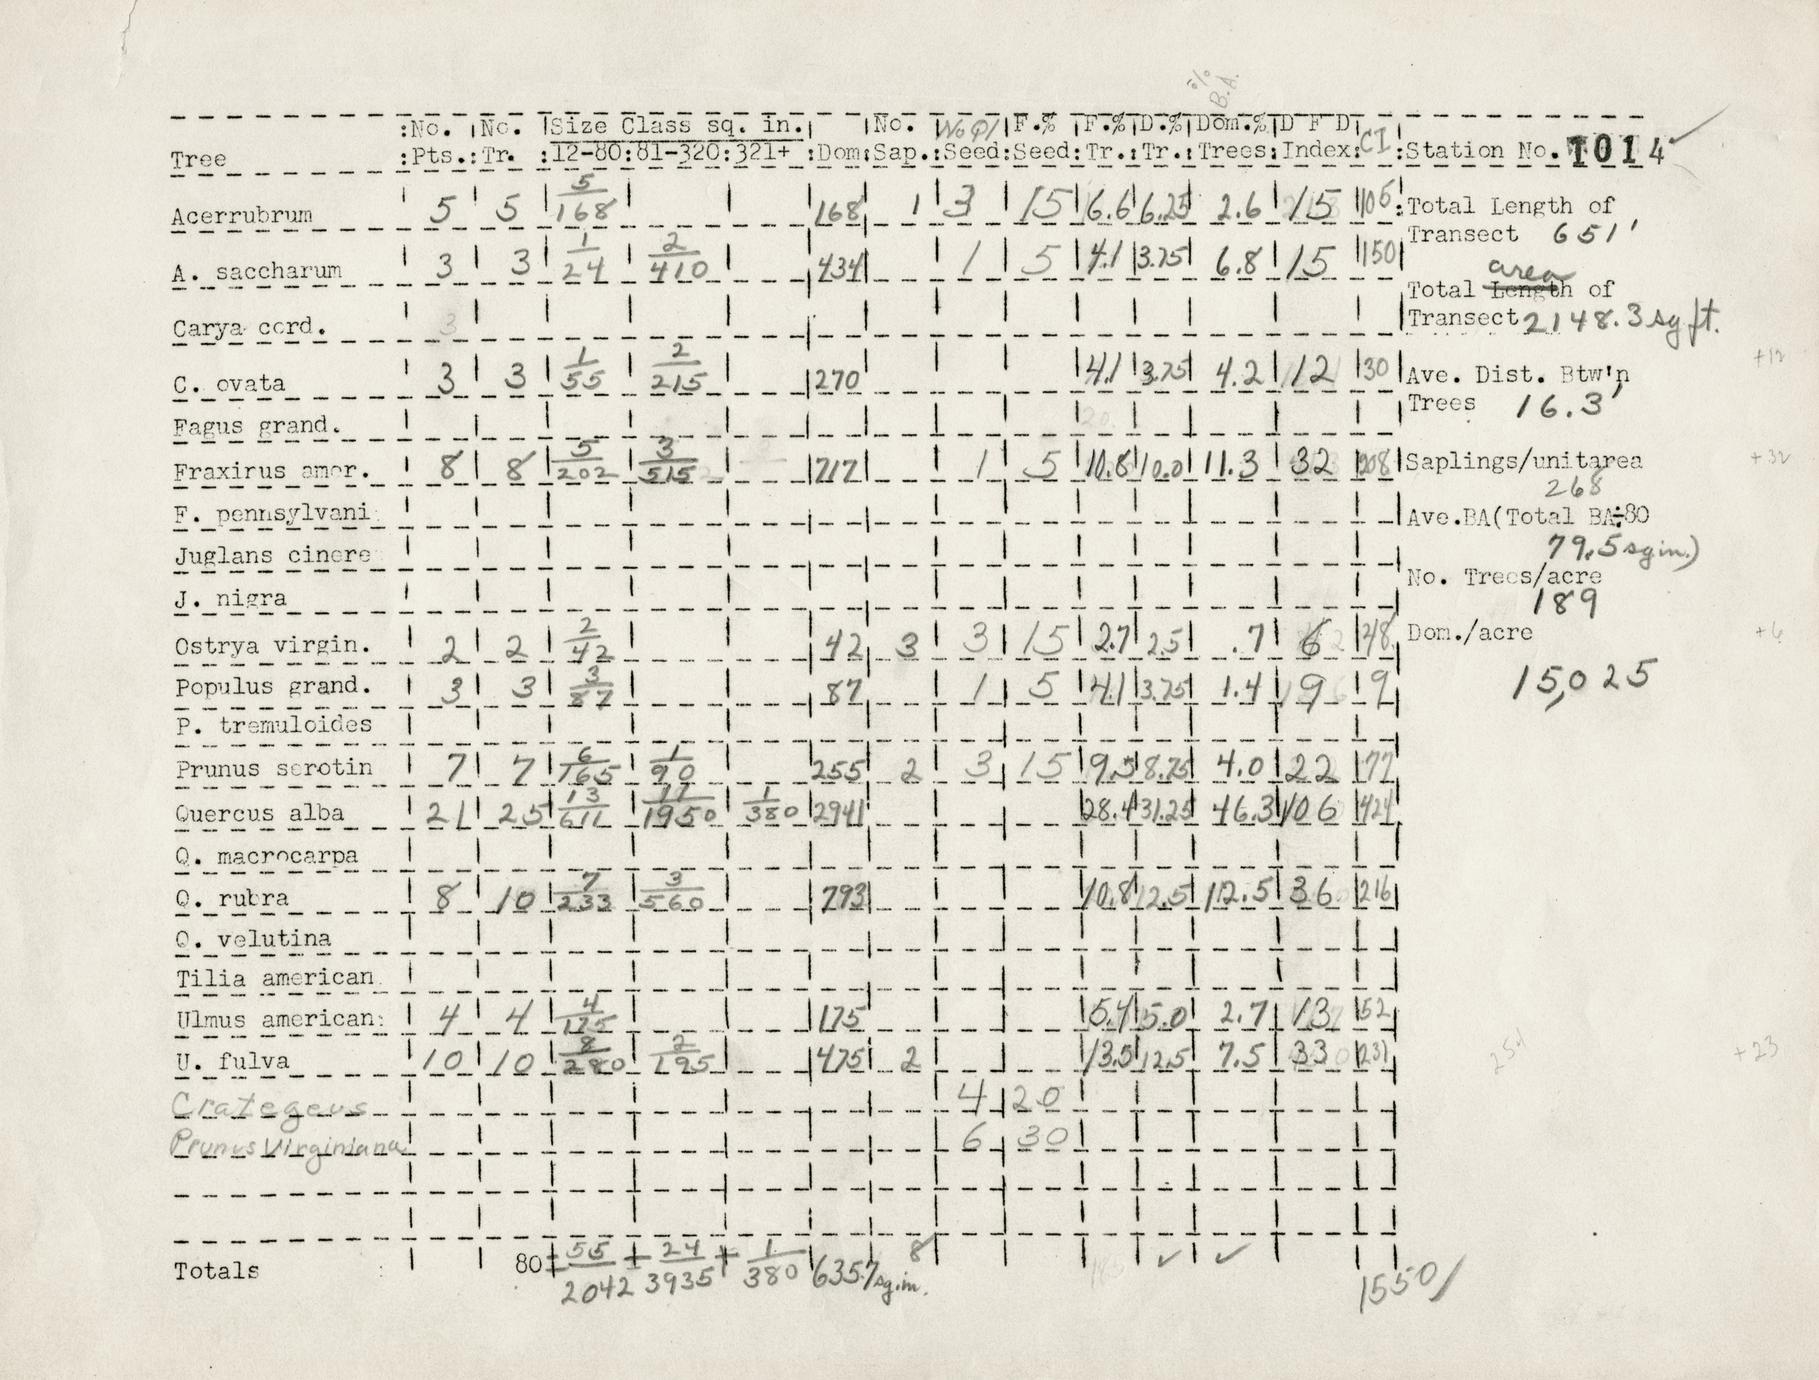 % B.A.
:No. No. Size Class sq. in. No. No Q/ F.% F.% D.% Dom.% D F D CI
Tree :Pts.: Tr. :12-80:81-320:321+ :Dom:Sap.:Seed:Seed:Tr.:Tr.:Trees:Index: :Station No. 1014 ✓
Acerrubrum 5 5 5/168 168 1 3 15 6.6 6.25 2.6 15 105 :Total Length of
Transect 651'
A. saccharum 3 3 1/24 2/410 434 1 5 4.1 3.75 6.8 15 150
area
Total Length of
Carya cord. 3
Transect 2148.3 sq ft.
+12
C. ovata 3 3 1/55 2/215 270 4.1 3.75 4.2 12 30 Ave. Dist. Btw'n
Trees 16.3'
Fagus grand.
Fraxirus amer. 8 8 5/202 3/515 717 1 5 10.8 10.0 11.3 32 208 Saplings/unitarea +32
268
F. pennsylvani Ave.BA(Total BA÷80
Juglans cinere 79.5 sq in.)
No. Trees/acre
J. nigra 189
Ostrya virgin. 2 2 2/42 42 3 3 15 2.7 2.5 .7 6 48 Dom./acre +6
Populus grand. 3 3 3/87 87 1 5 4.1 3.75 1.4 9 9 15,025
P. tremuloides
Prunus serotin 7 7 6/165 1/90 255 2 3 15 9.5 8.75 4.0 22 77
Quercus alba 21 25 13/611 11/1950 1/380 2941 28.4 31.25 46.3 106 424
Q. macrocarpa
Q. rubra 8 10 7/233 3/560 793 10.8 12.5 12.5 36 216
Q. velutina
Tilia american
Ulmus american: 4 4 4/175 175 5.4 5.0 2.7 13 52
U. fulva 10 10 8/280 2/195 475 2 13.5 12.5 7.5 33 231 +23
Crategeus 4 20
Prunus Virginiana 6 30
Totals : 80 55/2042 + 24/3935 + 1/380 6357 sq.in. 8 ✓ ✓ 1550/